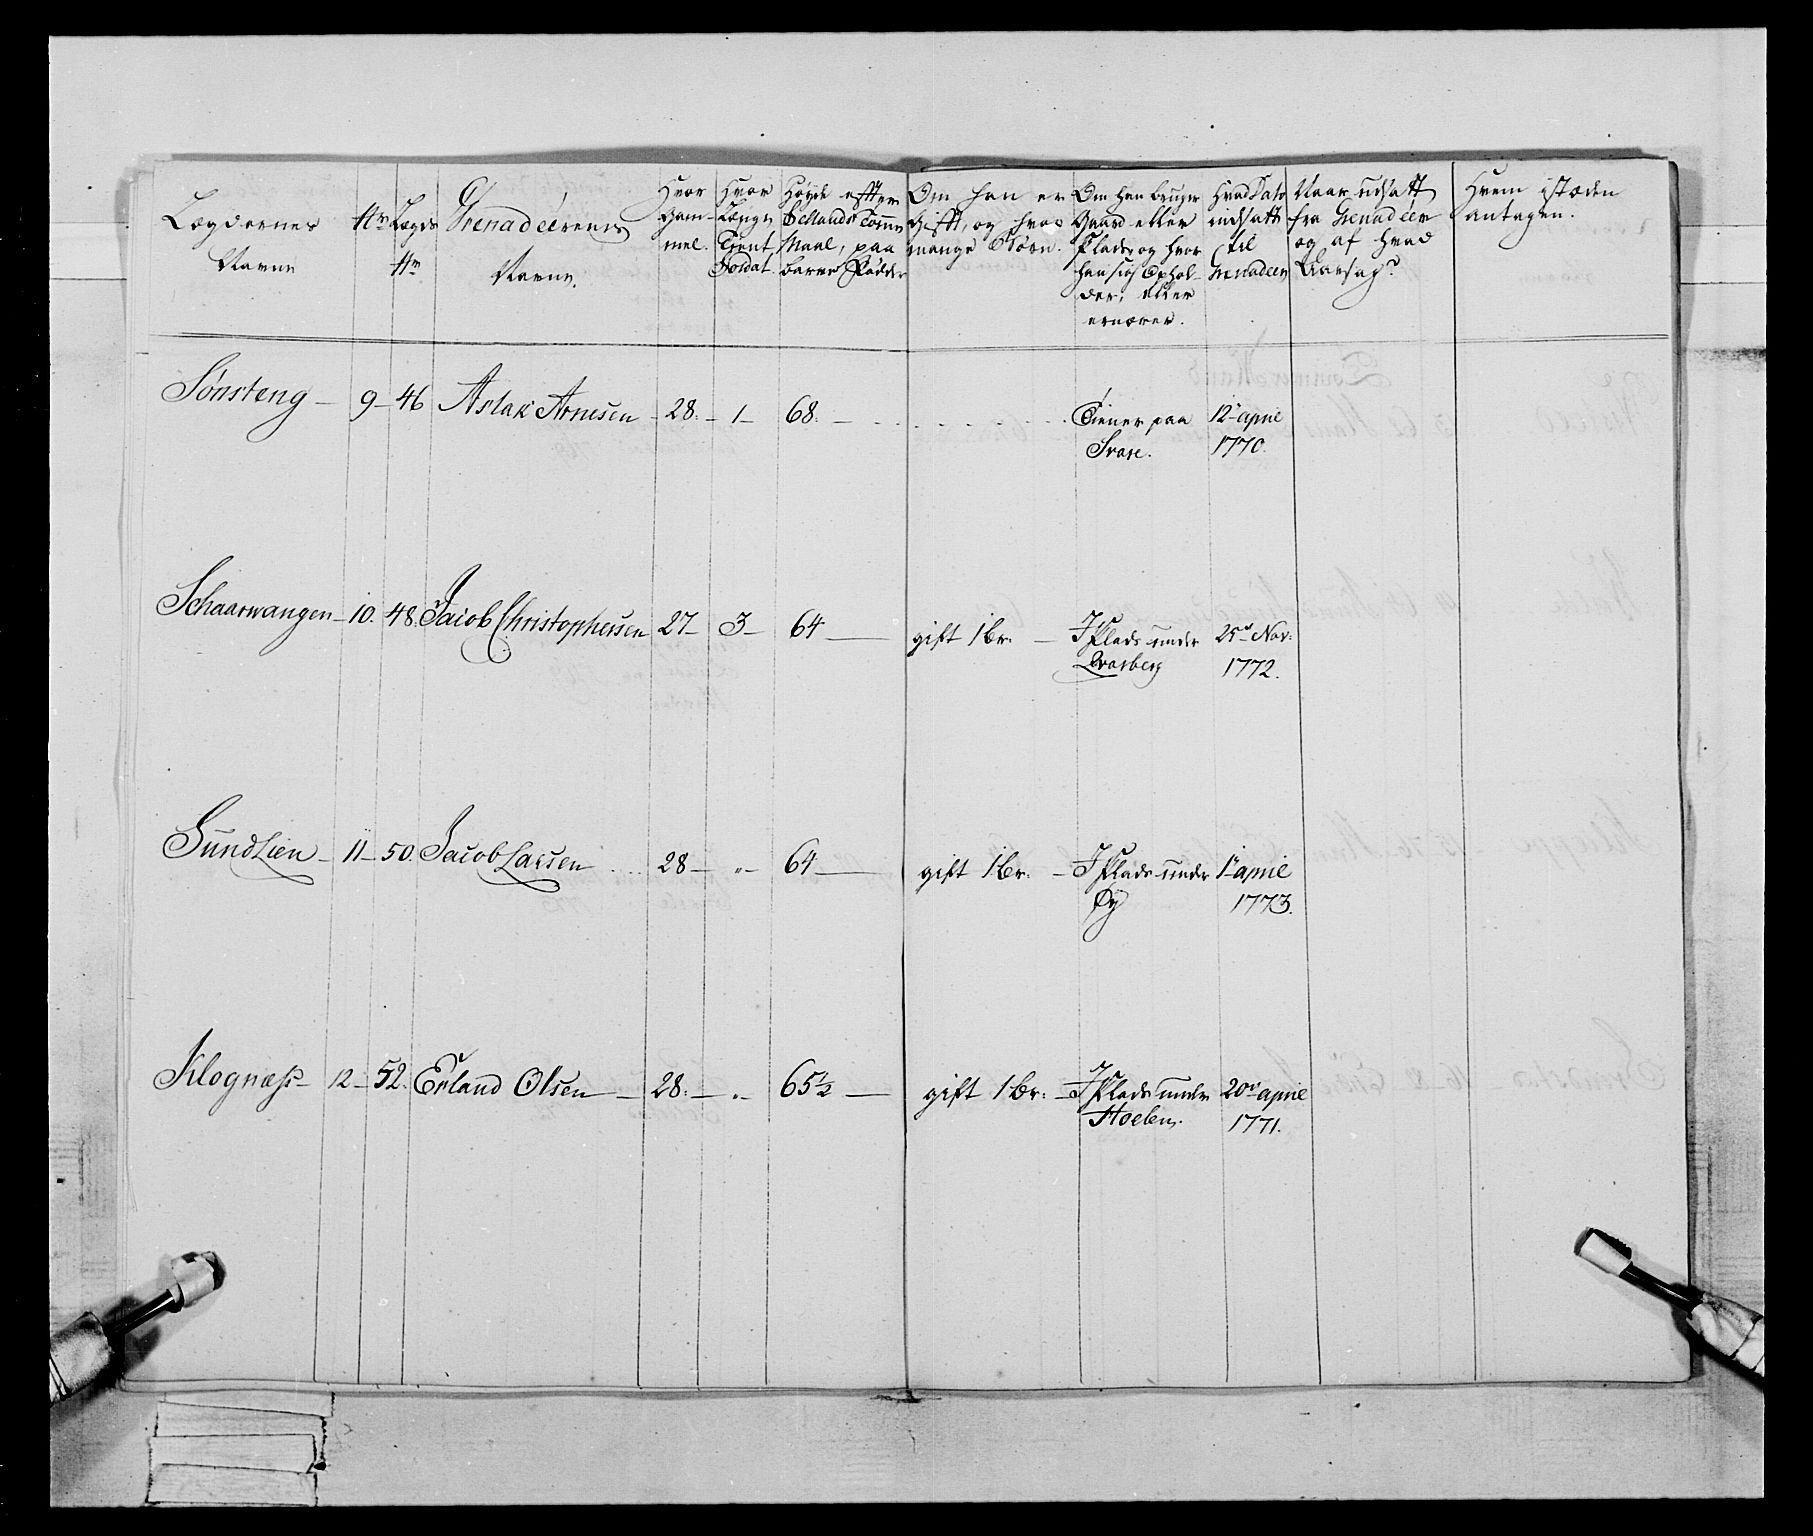 Lægdernes Navne
Nr
Lægds Nr
Grenadeerernes Navne.
Hvor Gam-
mel.
Hvor
Længe
Tient
Soldat.
Høyde efter
Sællands Tomme
Maal, paa
barne Fødder
Om han er
Gifft, og hvor
mange Børn.
Om han bruger
Gaard eller
Plads, og hvor
han sig Ophol-
der, eller
ernærer.
Hvad Dato
udsatt
til
Grenadeer
Naar udsatt
fra Grenadeer
og af hvad
Aarsag?
Hvem istæden
antagen.
Sønsteng – 9 – 46 Aslak Arnesen – 28. – 1 – 68. – Tiener paa 12te april
Svare. 1770.
Schaarvangen – 10. 48. Jacob Christophersen 27 – 3 – 64 — gift 1 br. – J Plads under 25de Nov:
Qvarberg 1772.
Sundlien – 11 – 50. Jacob Larsen 28 – „ – 64 — gift 1 br. – J Plads under 1te april
Øy 1773.
Klognæss – 12 – 52. Erland Olsen – 28. – „ – 65½ — gift 1 br. – J Plads under 20de april
Hoelen. 1771.